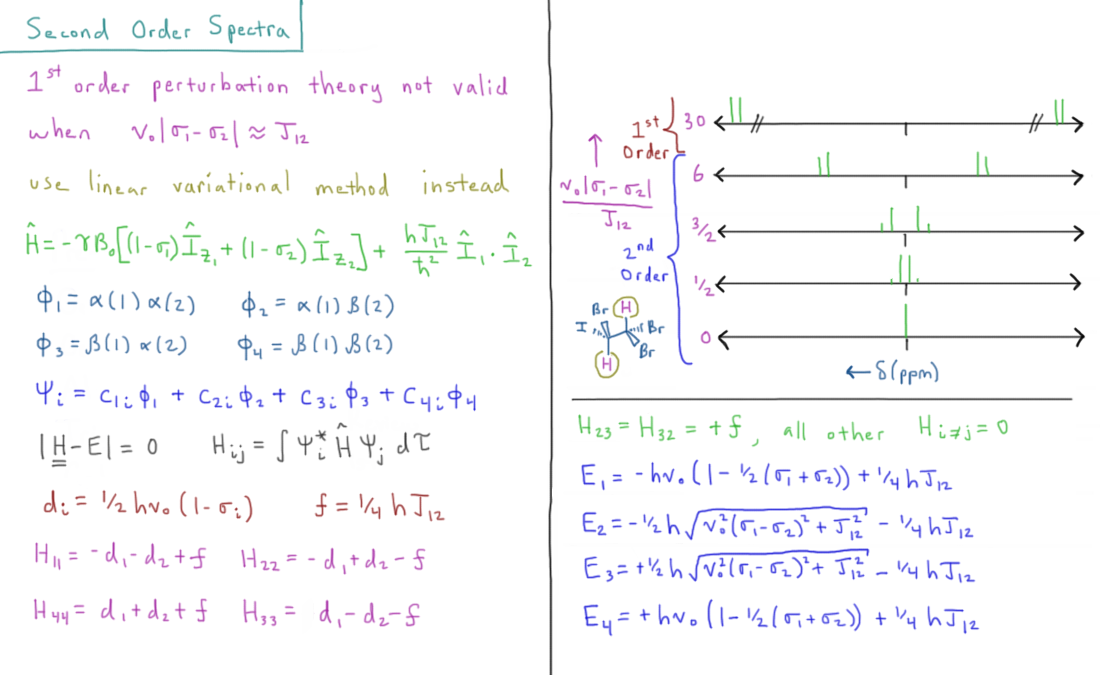 Second Order Spectra
1st order perturbation theory not valid
when ν₀|σ₁-σ₂| ≈ J₁₂
use linear variational method instead
Ĥ = -γB₀[(1-σ₁)Î_z₁ + (1-σ₂)Î_z₂] + hJ₁₂/ħ² Î₁·Î₂
ϕ₁ = α(1)α(2) ϕ₂ = α(1)β(2)
ϕ₃ = β(1)α(2) ϕ₄ = β(1)β(2)
Ψᵢ = C₁ᵢϕ₁ + C₂ᵢϕ₂ + C₃ᵢϕ₃ + C₄ᵢϕ₄
|H-E| = 0 Hᵢⱼ = ∫Ψᵢ* Ĥ Ψⱼ dτ
dᵢ = ½hν₀(1-σᵢ) f = ¼hJ₁₂
H₁₁ = -d₁-d₂+f H₂₂ = -d₁+d₂-f
H₄₄ = d₁+d₂+f H₃₃ = d₁-d₂-f
1st Order
30
6
ν₀|σ₁-σ₂|/J₁₂
3/2
2nd Order
1/2
Br H
I Br
Br
H
0
←δ(ppm)
H₂₃ = H₃₂ = +f, all other H_i≠j = 0
E₁ = -hν₀(1-½(σ₁+σ₂)) + ¼hJ₁₂
E₂ = -½h√(ν₀²(σ₁-σ₂)² + J₁₂²) - ¼hJ₁₂
E₃ = +½h√(ν₀²(σ₁-σ₂)² + J₁₂²) - ¼hJ₁₂
E₄ = +hν₀(1-½(σ₁+σ₂)) + ¼hJ₁₂